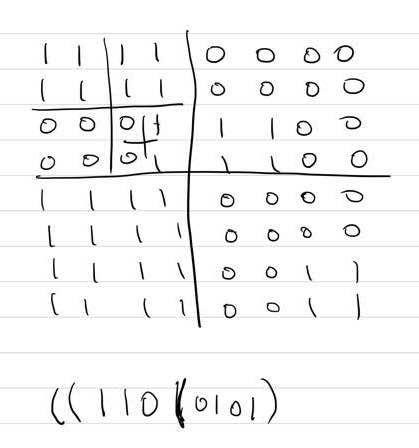 1 1 1 1 0 0 0 0
1 1 1 1 0 0 0 0
0 0 0 1 1 1 0 0
0 0 0 1 1 1 0 0
1 1 1 1 0 0 0 0
1 1 1 1 0 0 0 0
1 1 1 1 0 0 1 1
1 1 1 1 0 0 1 1
((110(0101)